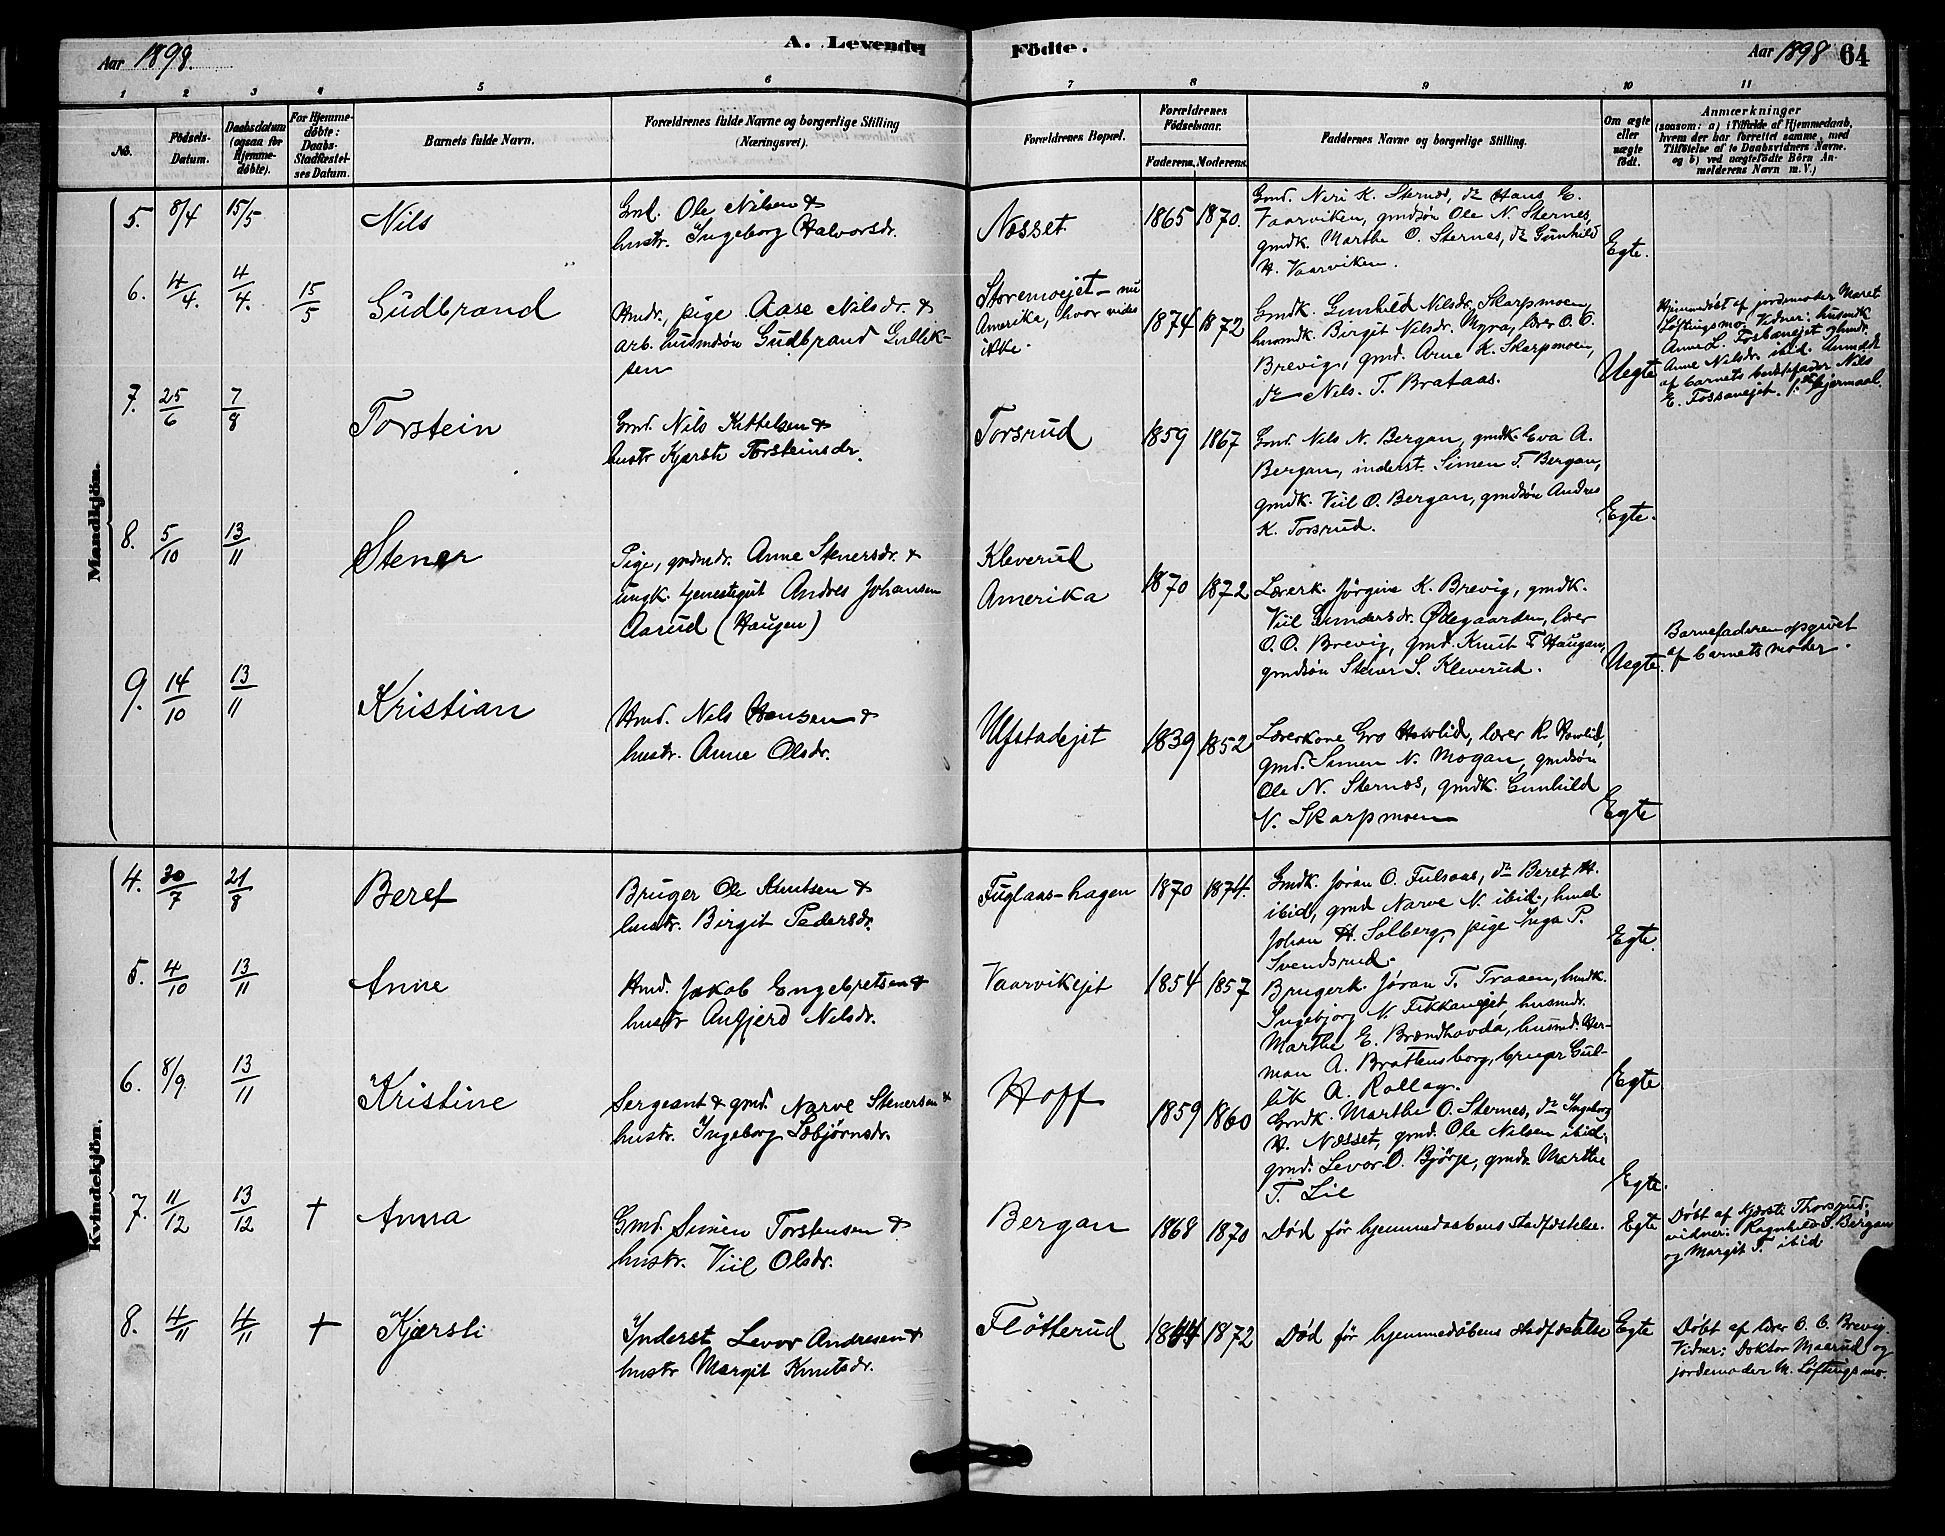 Aar 1898. A. Levende Födte. Aar 1898 64
1 2 3 4 5 6 7 8 9 10 11
No.
Födsels-
Datum.
Daabsdatum
(ogsaa for
Hjemme-
döbte).
For Hjemme-
döbte:
Daabs-
Stadfæstel-
ses Datum.
Barnets fulde Navn.
Forældrenes fulde Navne og borgerlige Stilling
(Næringsvei).
Forældrenes Bopæl.
Forældrenes
Födselsaar.
Faderens. Moderens.
Faddernes Navne og borgerlige Stilling.
Om ægte
eller
uægte
født.
Anmærkninger
(saasom: a) i Tilfælde af Hjemmedaab,
hvem der har forrettet samme, med
Tilföielse af to Daabsvidners Navne.
og b) ved uægtefödte Börn An-
melderens Navn m. V.)
Mandkjön.
5. 8/4 15/5
Nils
Gmd. Ole Nilsen &
hustr. Ingeborg Halvorsdr.
Nesset
1865 1870.
Gmd. Neri K. Sternes, do Hans E.
Vaarviken, gmdsøn Ole N. Sternes,
gmdk. Marthe O. Sternes, do Gunhild
H. Vaarviken.
Egte.
6. 4/4. 4/4. 15/5
Gudbrand
Hmdr., pige Aase Nilsdr. &
arb. husmdsøn Gudbrand Gullik-
sen
Storemoejet – nu
Amerika, hvor vides
ikke.
1874 1872
Gmdk. Gunhild Nilsdr. Skarpmoen,
husmdk. Birgit Nilsdr. Myra, lærer O. O.
Brevig, gmd. Arne K. Skarpmoen,
do Nils. T. Brataas.
Uegte
Hjemmedøbt af jordemoder Maret
Løftingsmo. Vidner: husmdk
Anne L. Fossanejet og hmdr.
Anne Nilsdr. ibid. Anmeldt
af barnets bedstefader Nils
E. Fossanejet. 1ste lejermaal.
7. 25/6 7/8
Torstein
Gmd. Nils Kittelsen &
hustr Kjersti Torsteinsdr.
Torsrud
1859 1867
Gmd. Nils N. Bergan, gmdk. Eva A.
Bergan, inderst. Simen T. Bergan,
gmdk. Viil O. Bergan, gmdsøn Andres
K. Torsrud.
Egte.
8. 5/10 13/11
Stener
Pige, gmdsdr. Anne Stenersdr. &
ungk. tjenestegut Andres Johansen
Aarud (Haugen)
Kleverud
Amerika
1870 1872
Lærerk. Jørgine K. Brevig, gmdk.
Viil Gundersdr. Ødegaarden, lærer
O. O. Brevig, gmd. Knut T. Haugan,
gmdsøn Stener S. Kleverud.
Uegte.
Barnefaderen opgivet
af barnets moder.
9. 14/10 13/11
Kristian
Hmd. Nils Hansen &
hustr. Anne Olsdr.
Ufstadejet
1839 1852
Lærerkone Gro Havlid, lærer K. Havlid,
gmd. Simen N. Mogan, gmdsøn
Ole N. Sternes, gmdk. Gunhild
N. Skarpmoen
Egte
Kvindekjön.
4. 30/7 21/8
Beret
Bruger Ole Knutsen &
hustr. Birgit Pedersdr.
Fuglaas-hagen
1870 1874.
Gmdk. Jøran O. Fulsaas, do Beret H.
ibid, gmd Narve N. ibid., hmd.
Johan H. Solberg, pige Inga P.
Svendsrud.
Egte.
5. 4/10 13/11
Anne
Hmd. Jakob Engebretsen &
hustr Angjerd Nilsdr.
Vaarvikejet
1854 1857
Brugerk. Jøran T. Traaen, hmdk.
Ingebjorg N. Fekkanejet husmdr.
Marthe E. Brændhovda, husmd. Her-
man A. Brattensborg, bruger Gul-
lik A. Rollag.
Egte
6. 8/9 13/11
Kristine
Sergeant & gmd. Narve Stenersen &
hustr. Ingeborg Sebjørnsdr.
Hoff
1859 1860
Gmdk. Marthe O. Sternes, do Ingeborg
H. Nesset, gmd. Ole Nilsen ibid.
gmd. Levor O. Bjørje, gmdk. Marthe
T. Lie
Egte.
7. 11/12 13/12 †
Anna
Gmd. Simen Torstensen &
hustr. Viil Olsdr.
Bergan
1868 1870
Død før hjemmedaabens stadfæstelse.
Egte
Døbt af Kjersti Thorsrud;
vidner: Ragnhild S. Bergan
og Margit T. ibid
8. 4/11 4/11 †
Kjersti
Inderst Levor Andresen &
hustr Margit Knutsdr.
Fløtterud
1864 1872
Død før hjemmedøbens stadfæstelse
Egte
Døbt af lærer O. O. Brevig.
Vidner: Doktor Maarud og
jordemoder M. Løftingsmo.